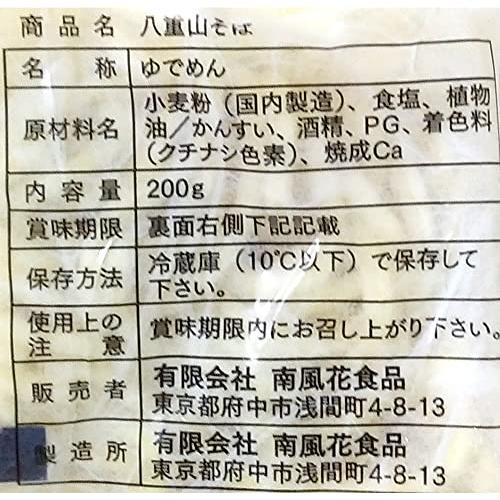 商品名 八重山そば
名称 ゆでめん
原材料名 小麦粉（国内製造）、食塩、植物
油／かんすい、酒精、PG、着色料
（クチナシ色素）、焼成Ca
内容量 200g
賞味期限 裏面右側下記記載
保存方法 冷蔵庫（10℃以下）で保存して
下さい。
使用上の注意 賞味期限内にお召し上がり下さい。
販売者 有限会社 南風花食品
東京都府中市浅間町4-8-13
製造所 有限会社 南風花食品
東京都府中市浅間町4-8-13